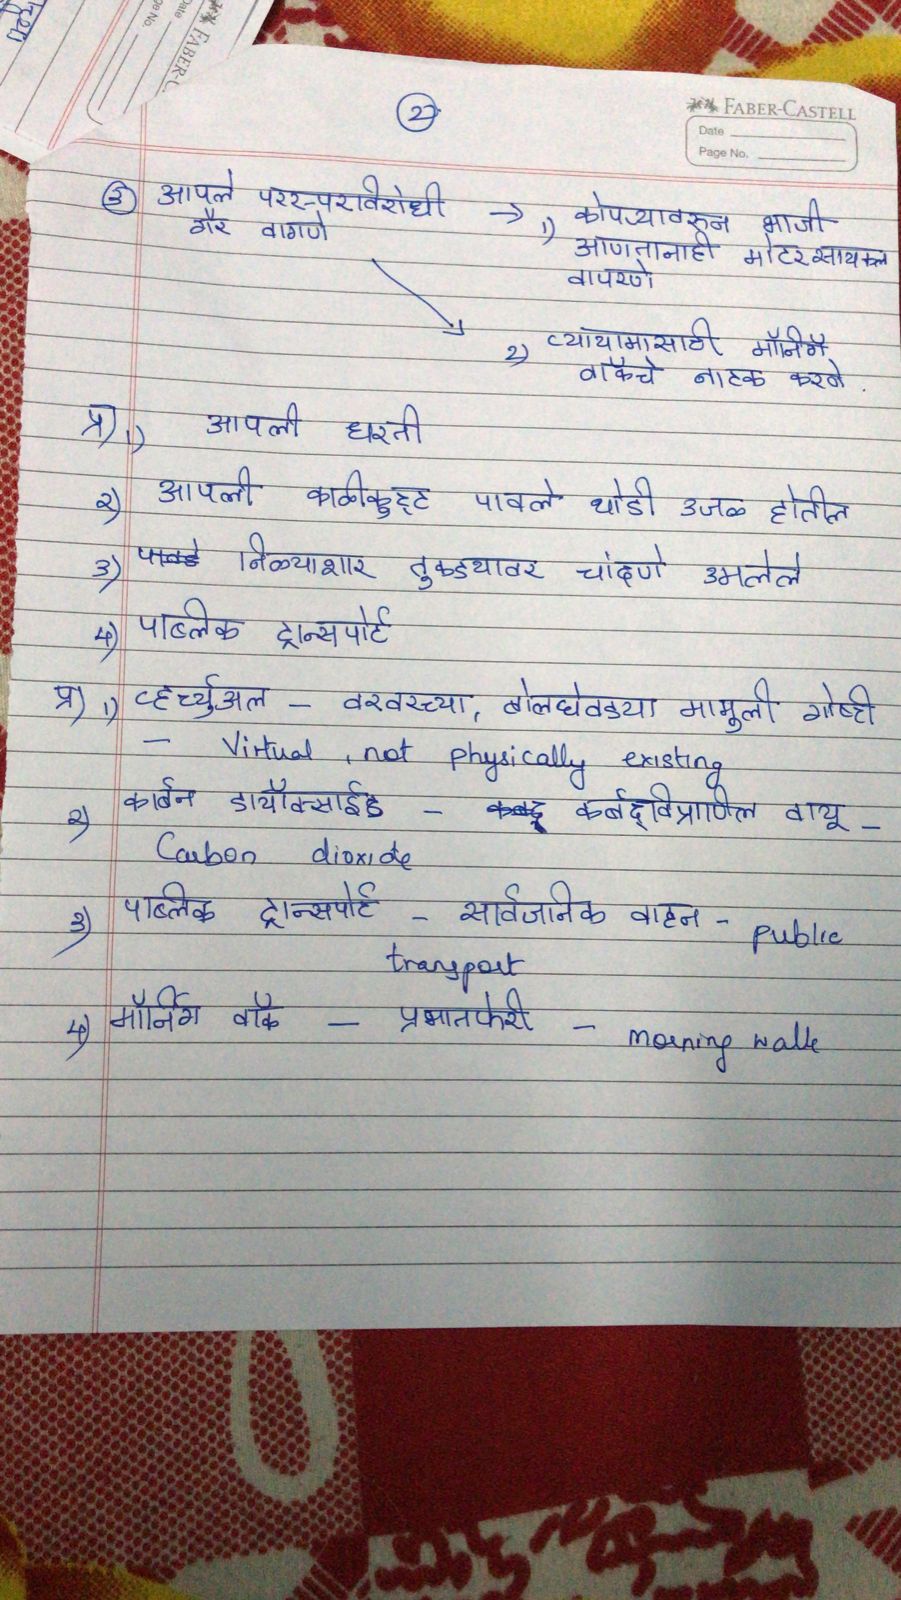 ②
FABER-CASTELL
Date
Page No.
③ आपले परस्परविरोधी → 1) कोपऱ्यावरून भाजी
गैर वागणे
आणतानाही मोटरसायकल
वापरणे
२) व्यायामासाठी मॉर्निंग
वॉकचे नाटक करणे.
प्र) 1) आपली धरती
२) आपली काळीकुट्ट पावले थोडी उजळ होतील
3) निळ्याशार तुकड्यावर चांदणे उमलेले
4) पाब्लिक ट्रान्सपोर्ट
प्र) 1) व्हर्च्युअल - वरवरच्या, बोलघेवड्या मामुली गोष्टी
- Virtual, not physically existing
२) कार्बन डायॉक्साईड - कर्बद्विप्राणिल वायू -
Carbon dioxide
3) पाब्लिक ट्रान्सपोर्ट - सार्वजनिक वाहन - public
transport
4) मॉर्निंग वॉक - प्रभातफेरी - morning walk